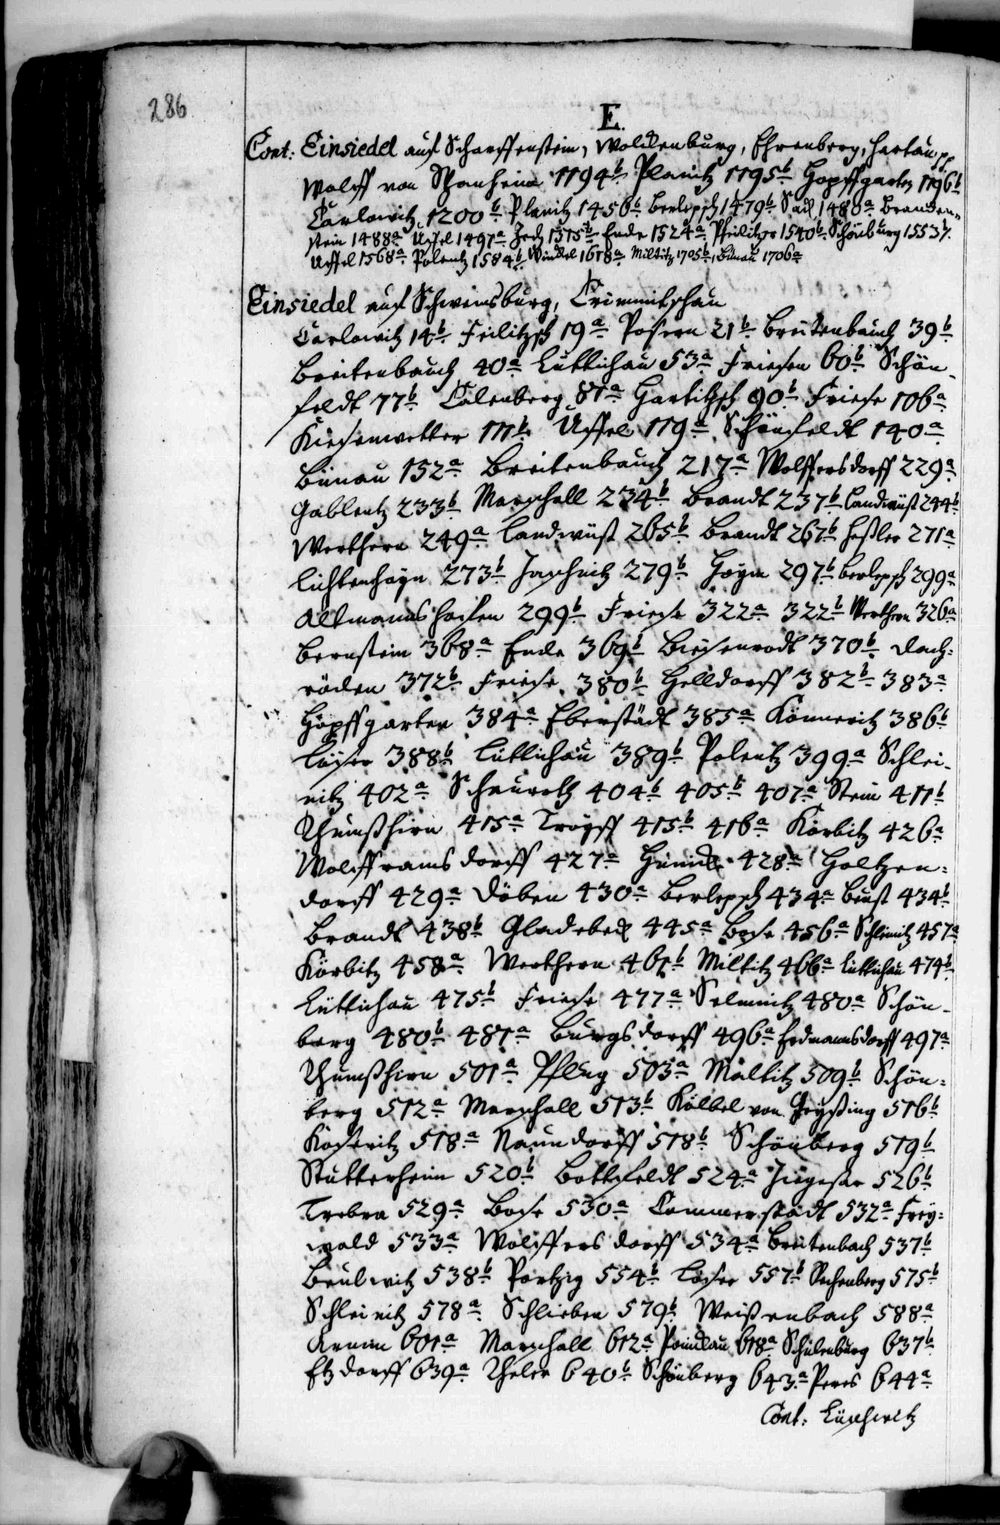 286
E.
Cont: Einsiedel auf Scharffenstein, Wolckenburg, Ehrenberg, Hartau
Wolff von Sponheim 1194b Planitz 1195b Hopffgarten 1196b
Carlowitz 1200b Planitz 1456b Berlepsch 1479b Sack 1480a Branden-
stein 1488a Uffel 1491a Zech 1515b Ende 1524a Pfeilitzer 1540b Schönburg 1553b
Uffel 1568a Polentz 1584b Winckel 1618a Miltitz 1705b, Bünau 1706a
Einsiedel auf Schweinsburg, Crimmitschau
Carlowitz 14b Feilitzsch 19a Posern 21b Breitenbauch 39b
Breitenbauch 40a Luttichau 53a Friesen 60b Schön-
feldt 77b Callenberg 81a Hartitzsch 90b Friese 106a
Kiesenwetter 111b Uffel 119a Schönfeldt 140a
Bünau 152a Breitenbauch 217a Wolffersdorff 229a
Gablentz 233b Marschall 234b Brandt 237b Landwüst 244b
Werthern 249a Landwüst 265b Brandt 267b Heßler 271a
Lichtenhayn 273b Jaschnitz 279b Hoym 297b Berlepsch 299a
Altmannshofen 299b Friese 322a 322b Werthern 326a
Bernstein 368a Ende 369b Biesenrodt 370b Dach-
röden 372b Friese 380b Helldorff 382b 383a
Hopffgarten 384a Eberstädt 385a Könneritz 386b
Löser 388b Lüttichau 389b Polentz 399a Schlei-
nitz 402a Schauroth 404b 405b 407a Stein 411b
Thumßhirn 415a Troyff 415b 416a Körbitz 426a
Wolfframsdorff 427a Hünicke 428a Holtzen-
dorff 429a Döben 430a Berlepsch 434a Beust 434b
Brandt 438b Gladebeck 445a Bose 456a Schleinitz 457a
Körbitz 458a Werthern 461b Miltitz 466a Lüttichau 474b
Lüttichau 475b Friese 477a Selmnitz 480a Schön-
berg 480b 487a Burgsdorff 496a Erdmannsdorff 497a
Thumßhirn 501a Pflug 503a Maltitz 509b Schön-
berg 512a Marschall 513b Kölbel von Geysing 516b
Koseritz 518a Naundorff 518b Schönberg 519b
Stutterheim 520b Bottfeldt 524a Ziegesar 526b
Trebra 529a Bose 530a Cammerstädt 532a Frey-
wald 533a Wolffersdorff 534a Breitenbach 537b
Beulwitz 538b Portzig 554b Löser 557b Rechenberg 575b
Schleinitz 578a Schlieben 579b Weißenbach 588a
Arnim 601a Marschall 612a Ponickau 618a Schulenburg 637b
Etzdorff 639a Theler 640b Schönberg 643a Peres 644a
Cont: Lüschwitz